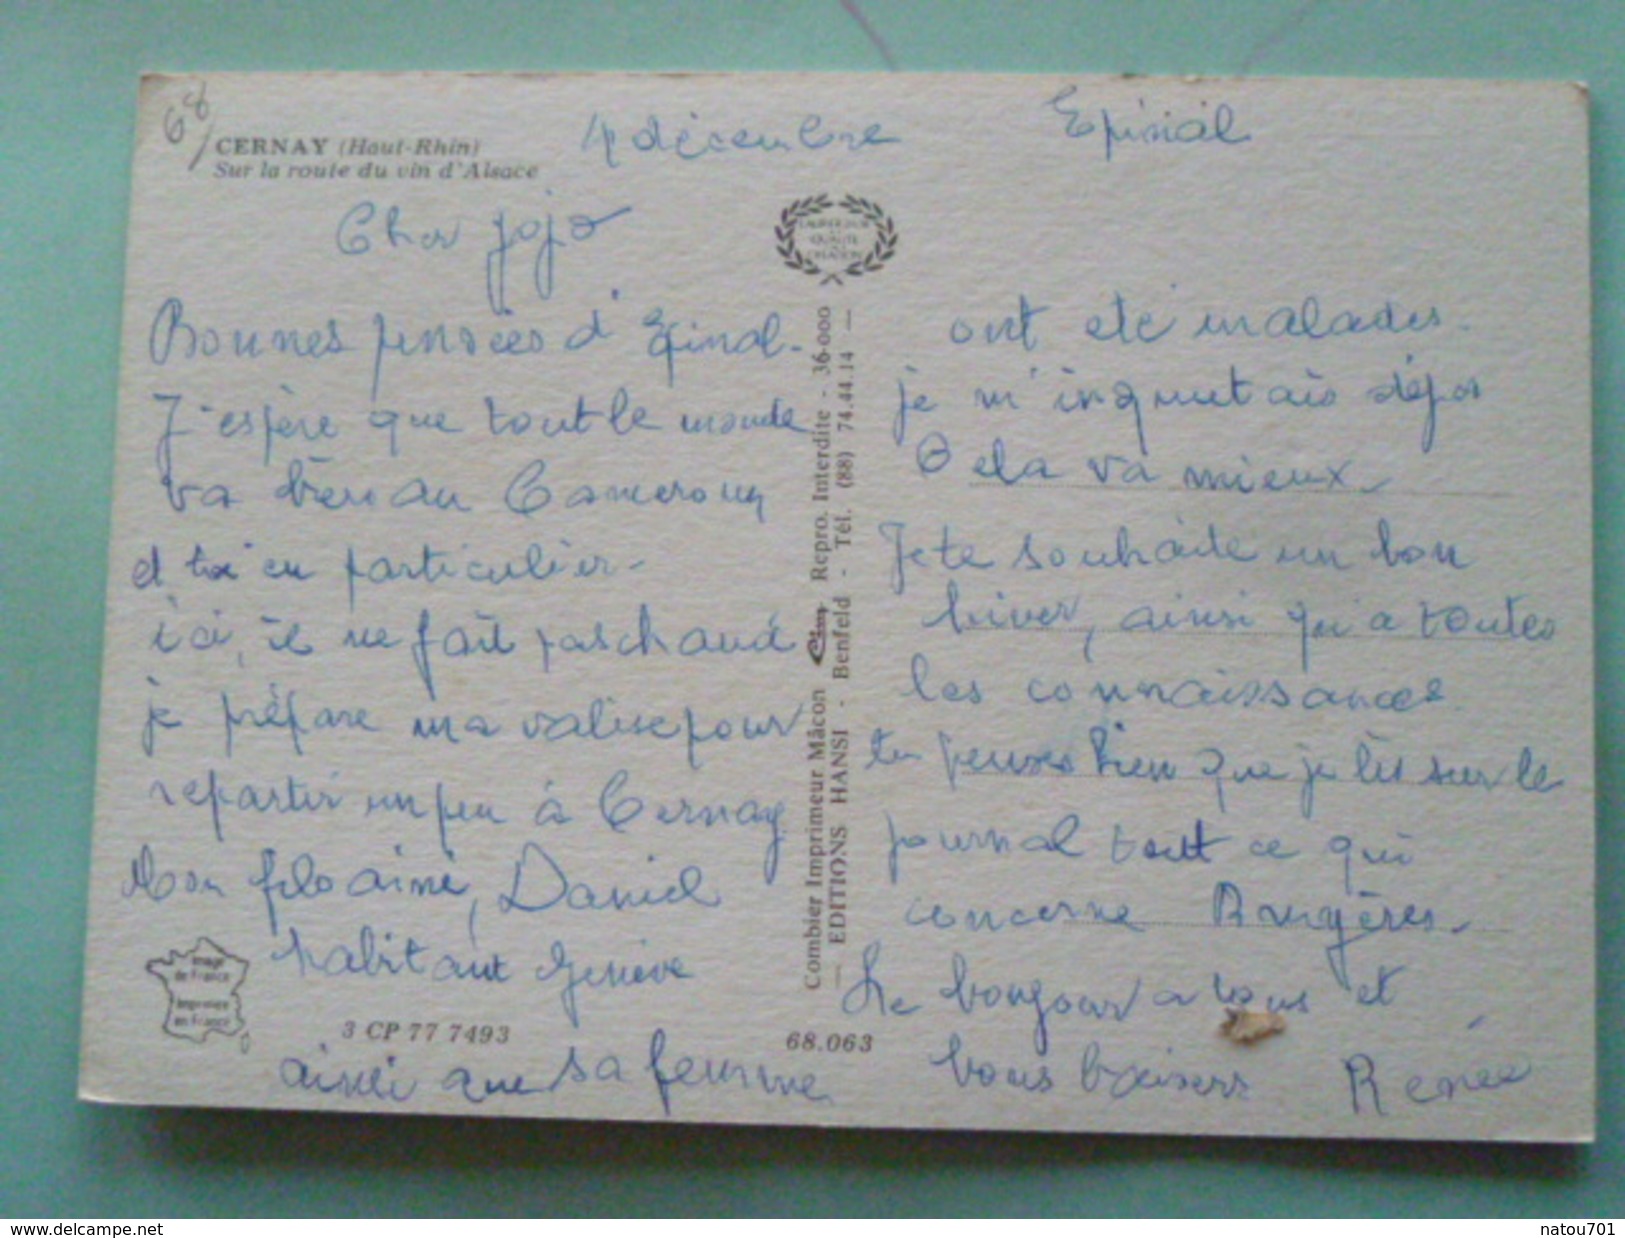 68
CERNAY (Haut-Rhin)
Sur la route du vin d'Alsace
4 décembre Epinal
Cher Jojo
Bonnes pensées d'Epinal -
J'espère que tout le monde
va bien au Cameroun
et toi en particulier -
ici, il ne fait pas chaud
je prépare ma valise pour
repartir un peu à Cernay
Mon fils ainé, Daniel
habitant Genève
ainsi que sa femme
Image
de France
Imprimée
en France
3 CP 77 7493
68.063
QUALITE
Combier Imprimeur Mâcon Cim Repro. Interdite - 36-000
— EDITIONS HANSI - Benfeld - Tél. (88) 74.44.14 —
ont eté malades.
je m'inquietais déjà
Cela va mieux -
Je te souhaite un bon
hiver, ainsi qu'a toutes
les connaissances
tu penses bien que je lis sur le
journal tout ce qui
concerne Bruyères -
Le bonjour a tous et
bons baisers Renée
www.delcampe.net
natou701